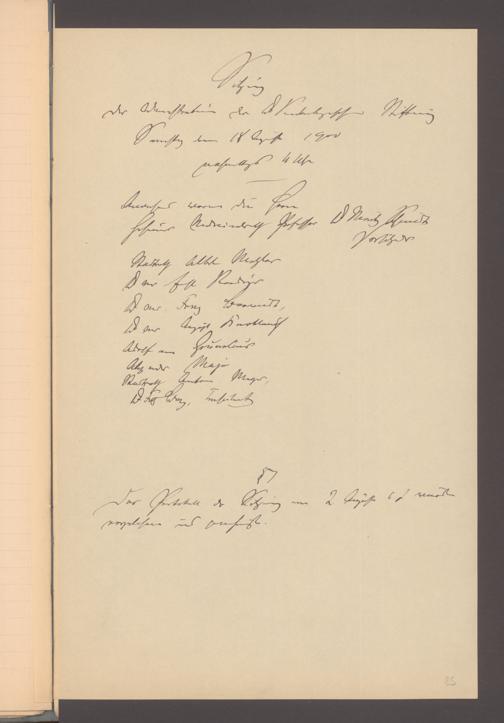 Sitzung
der Administration der Dr Senckenbergischen Stiftung
Samstag den 18 August 1900
nachmittags 4 Uhr
Anwesend waren die Herren
Geheimer Medicinalrath Professor Dr Moritz Schmidt
Vorsitzender
Stadtrath Albert Metzler
Dr med. Roediger
Dr med.
Dr med. August Knoblauch
Adolf von Grunelius
Alexander Majer
Stadtrath Anton Meyer,
Dr Fritz Berg,
§1
Das Protokoll der Sitzung vom 2 August d J wurde
vorgelesen und genehmigt.
85